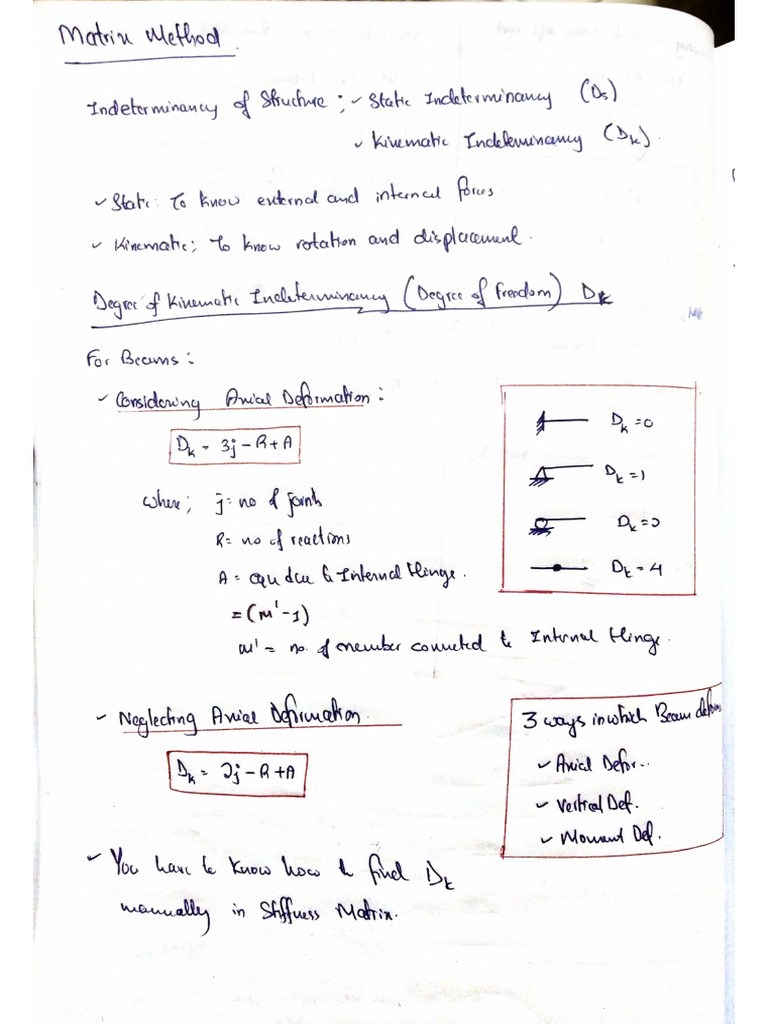 Matrix Method
Indeterminancy of Structure : ✓ Static Indeterminancy (Ds)
✓ Kinematic Indeterminancy (Dk).
✓ Static: To know external and internal forces
✓ Kinematic; To know rotation and displacement.
Degree of Kinematic Indeterminancy (Degree of freedom) Dk
For Beams:
✓ Considering Axial Deformation:
Dk = 3j - R + A
where; j = no of joints
R = no of reactions
A = equ due to Internal Hinge.
= (m' - 1)
m' = no. of member connected to Internal Hinge.
Dk = 0
Dk = 1
Dk = 2
Dk = 4
✓ Neglecting Axial Deformation.
Dk = 2j - R + A
3 ways in which Beam deforms
✓ Axial Defor..
✓ Vertical Def.
✓ Moment Def.
✓ You have to know how to find Dk
manually in Stiffness Matrix.